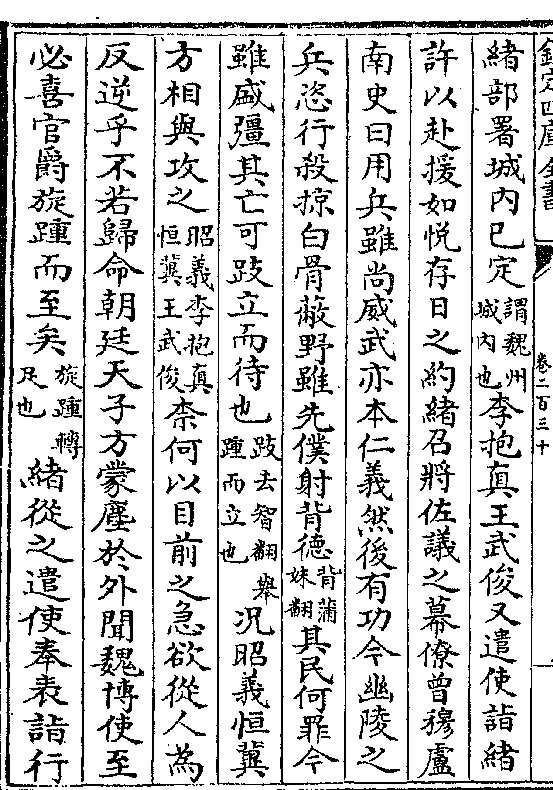 欽定四庫全書
卷二百三十
緒部署城內已定謂魏州城內也李抱真王武俊又遣使詣緒
許以赴援如悅存日之約緒召將佐議之幕僚曾穆盧
南史曰用兵雖尚威武亦本仁義然後有功今幽陵之
兵恣行殺掠白骨蔽野雖先僕射背德背蒲妹翻其民何罪今
雖盛彊其亡可跂立而待也跂去智翻舉踵而立也況昭義恒冀
方相與攻之昭義李抱真恒冀王武俊柰何以目前之急欲從人為
反逆乎不若歸命朝廷天子方蒙塵於外聞魏博使至
必喜官爵旋踵而至矣旋踵轉足也緒從之遣使奉表詣行